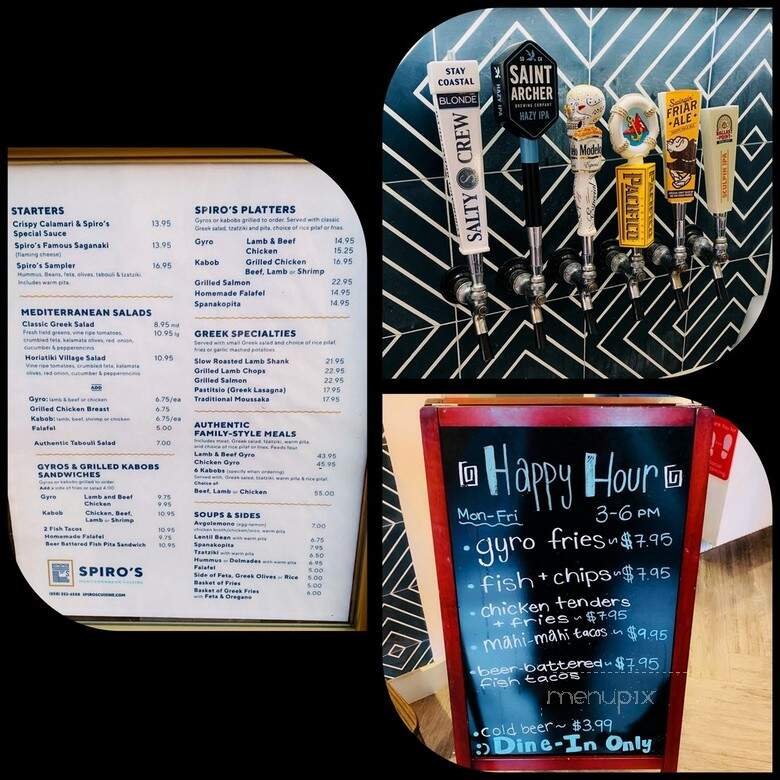 STARTERS
Crispy Calamari & Spiro's 13.95
Special Sauce
Spiro's Famous Saganaki 13.95
(flaming cheese)
Spiro's Sampler 16.95
Hummus, Beans, feta, olives, tabouli & tzatziki.
Includes warm pita.
MEDITERRANEAN SALADS
Classic Greek Salad 8.95 md
Fresh field greens, vine ripe tomatoes, 10.95 lg
crumbled feta, kalamata olives, red onion,
cucumber & pepperoncinis
Horiatiki Village Salad 10.95
Vine ripe tomatoes, crumbled feta, kalamata
olives, red onion, cucumber & pepperoncinis
ADD
Gyro: lamb & beef or chicken 6.75/ea
Grilled Chicken Breast 6.75
Kabob: lamb, beef, shrimp or chicken 6.75/ea
Falafel 5.00
Authentic Tabouli Salad 7.00
GYROS & GRILLED KABOBS
SANDWICHES
Gyros or kabobs grilled to order.
Add a side of fries or salad 4.00
Gyro Lamb and Beef 9.75
Chicken 9.95
Kabob Chicken, Beef, 10.95
Lamb or Shrimp
2 Fish Tacos 10.95
Homemade Falafel 9.75
Beer Battered Fish Pita Sandwich 10.95
SPIRO'S
MEDITERRANEAN CUISINE
SPIROSCUISINE.COM
SPIRO'S PLATTERS
Gyros or kabobs grilled to order. Served with classic
Greek salad, tzatziki and pita, choice of rice pilaf or fries.
Gyro Lamb & Beef 14.95
Chicken 15.25
Kabob Grilled Chicken 16.95
Beef, Lamb or Shrimp
Grilled Salmon 22.95
Homemade Falafel 14.95
Spanakopita 14.95
GREEK SPECIALTIES
Served with small Greek salad and choice of rice pilaf,
fries or garlic mashed potatoes
Slow Roasted Lamb Shank 21.95
Grilled Lamb Chops 22.95
Grilled Salmon 22.95
Pastitsio (Greek Lasagna) 17.95
Traditional Moussaka 17.95
AUTHENTIC
FAMILY-STYLE MEALS
Includes meat, Greek salad, tzatziki, warm pita,
and choice of rice pilaf or fries. Feeds four
Lamb & Beef Gyro 43.95
Chicken Gyro 45.95
6 Kabobs (specify when ordering)
Served with, Greek salad, tzatziki, warm pita & rice pilaf
Choice of
Beef, Lamb or Chicken 55.00
SOUPS & SIDES
Avgolemono (egg-lemon) 7.00
chicken broth/chicken/orzo, warm pita
Lentil Bean with warm pita 6.75
Spanakopita 7.95
Tzatziki with warm pita 6.50
Hummus or Dolmades with warm pita 6.95
Falafel 5.00
Side of Feta, Greek Olives or Rice 5.00
Basket of Fries 5.00
Basket of Greek Fries 6.00
with Feta & Oregano
STAY
COASTAL
BLONDE
SALTY CREW
HAZY IPA
SO CA
SAINT
ARCHER
BREWING COMPANY
HAZY IPA
Modelo
Especial
PACIFICO
FRIAR
ALE
BALLAST
POINT
SCULPIN IPA
Happy Hour
Mon-Fri 3-6 PM
• gyro fries ~ $7.95
• fish + chips ~ $7.95
• chicken tenders
+ fries ~ $7.95
• mahi-mahi tacos ~ $9.95
• beer-battered ~ $7.95
fish tacos
menupix
• cold beer ~ $3.99
:) Dine-In Only